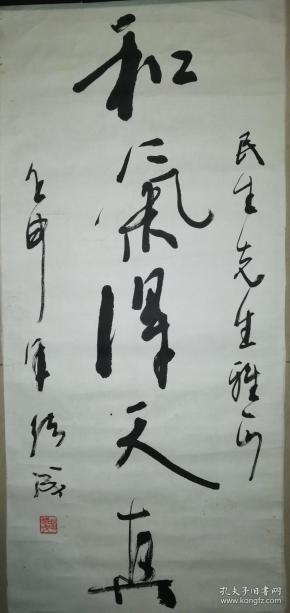 民生先生雅正
和氣得天真
壬申年
孔夫子旧书网
www.kongfz.com